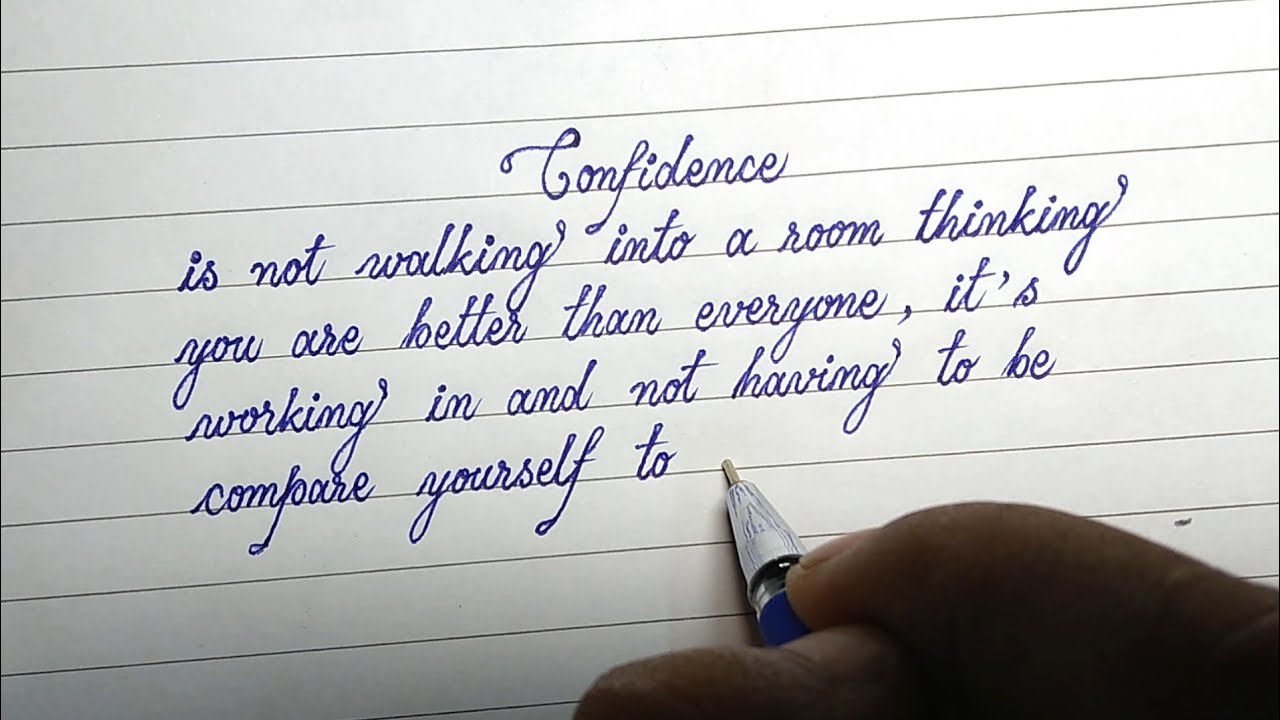 Confidence
is not walking into a room thinking
you are better than everyone, it's
working in and not having to be
compare yourself to